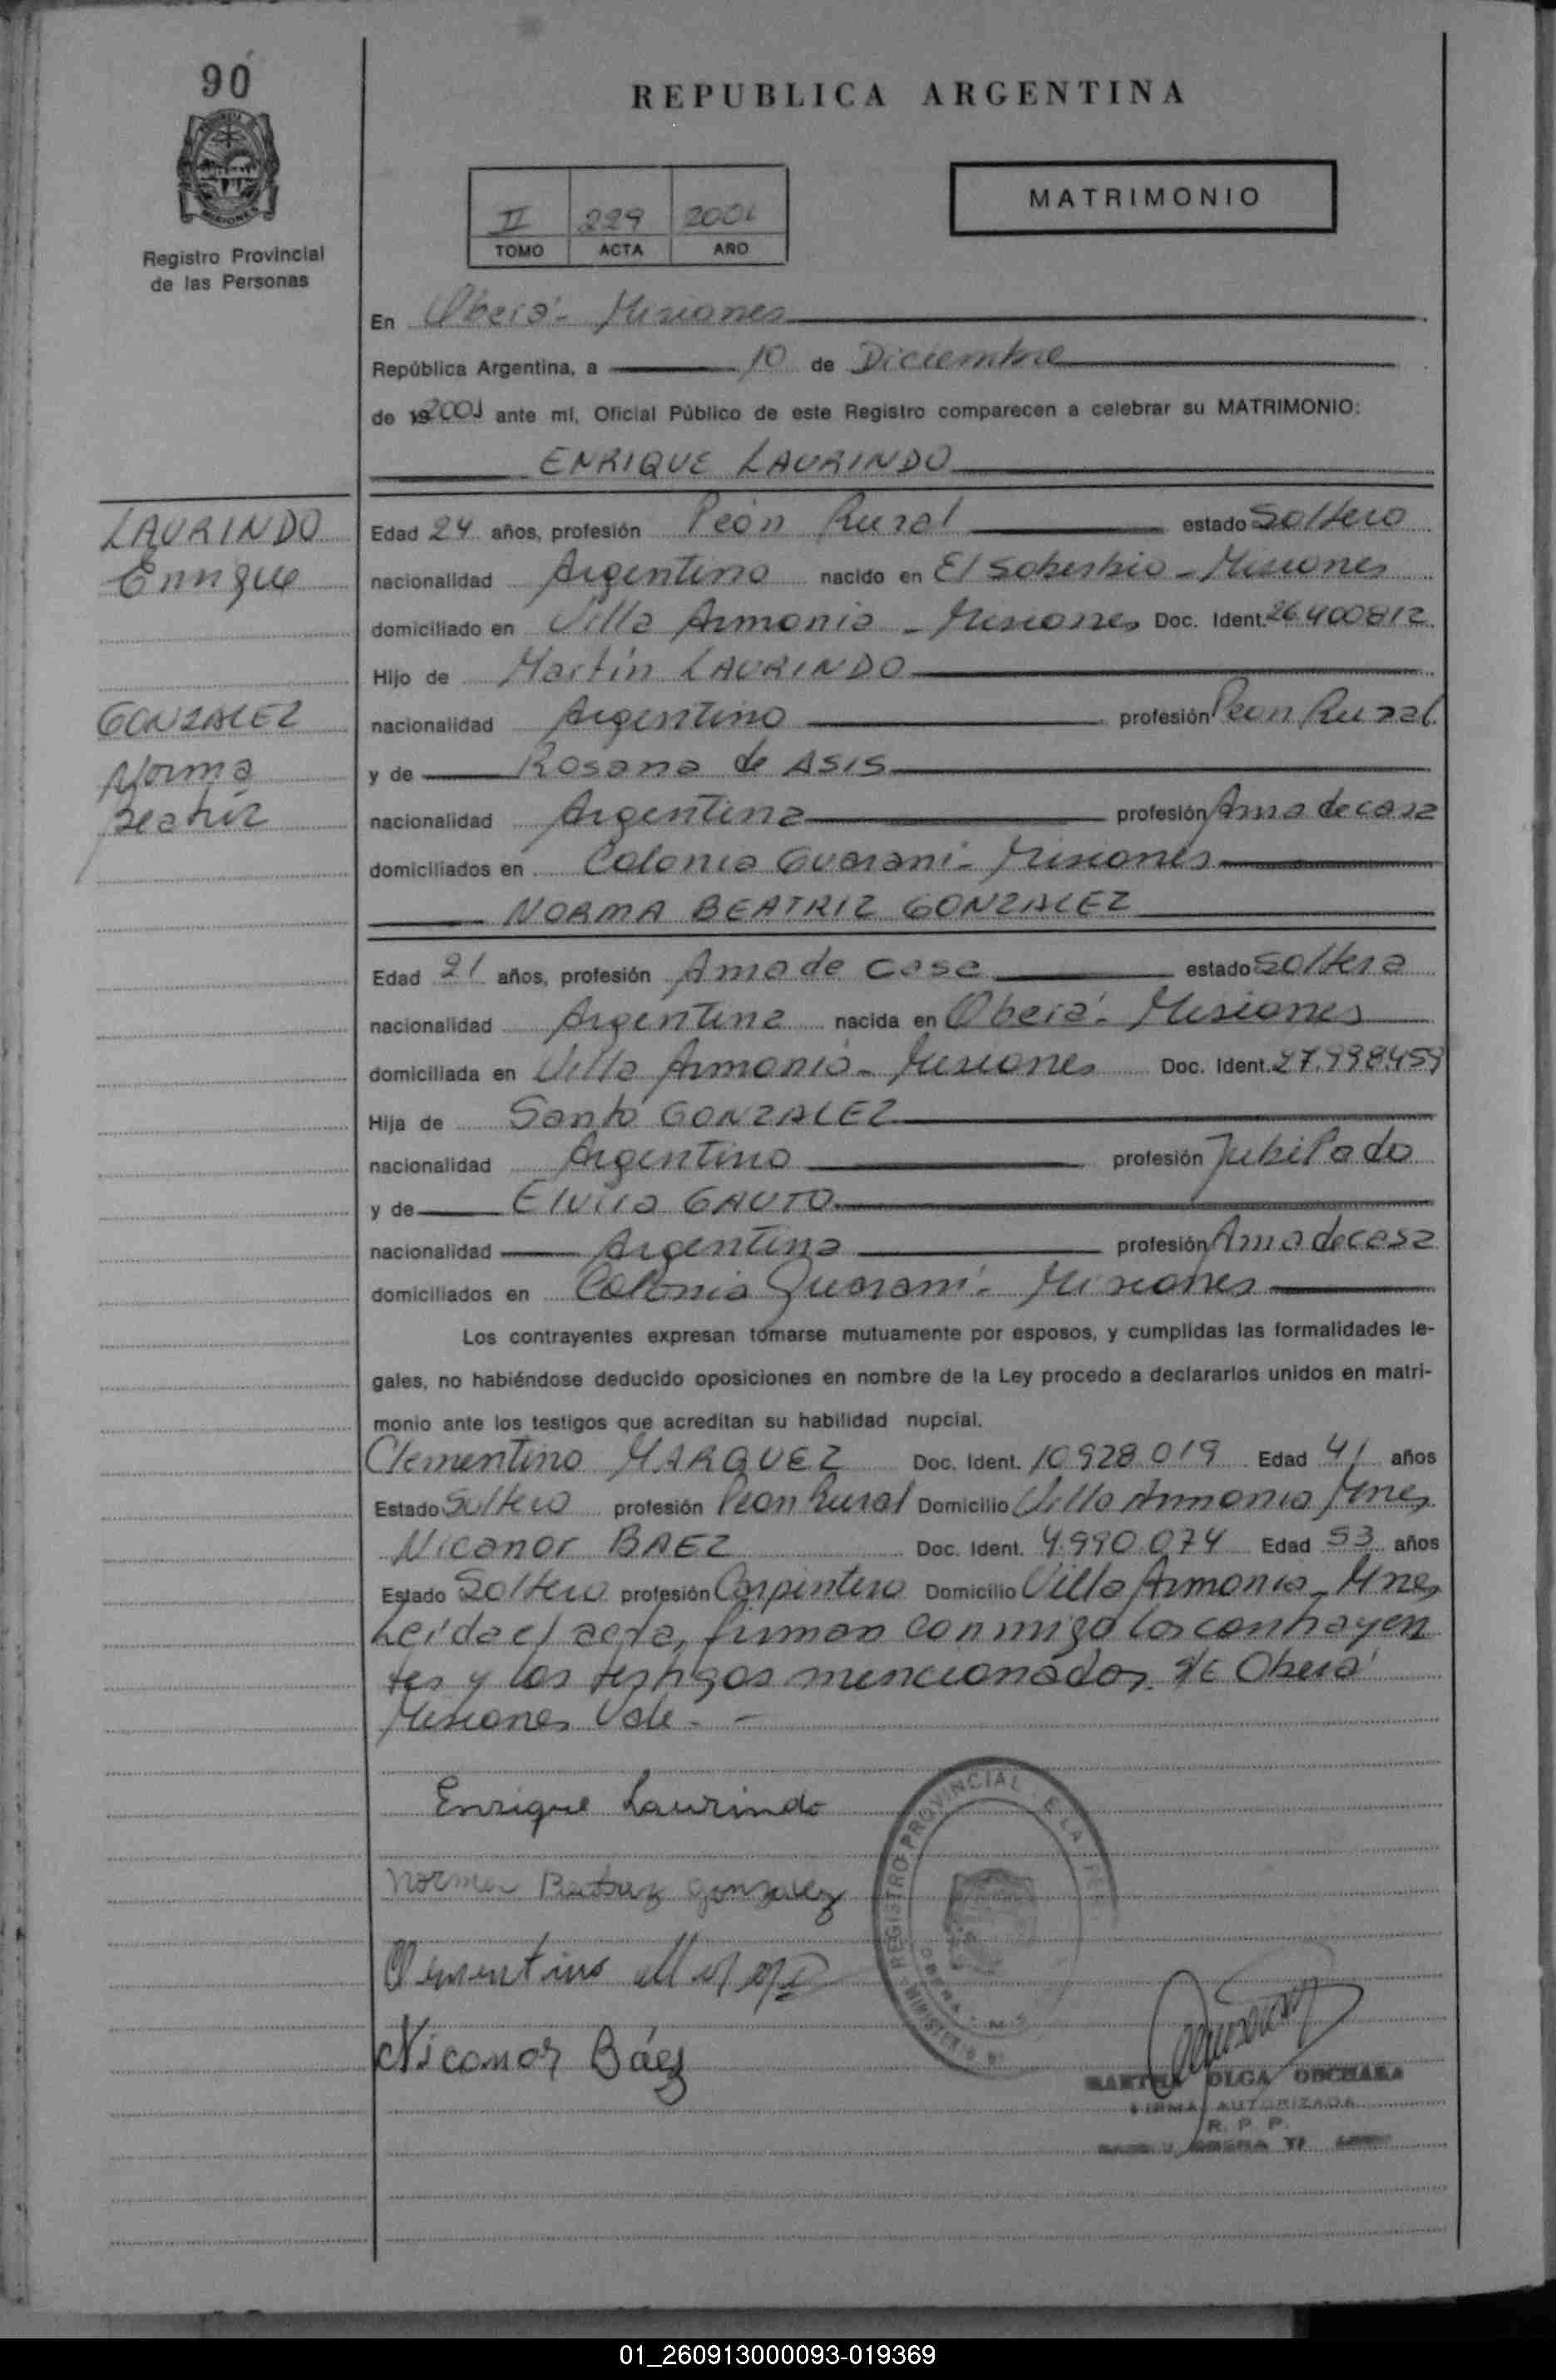 90
REPUBLICA ARGENTINA
MATRIMONIO
II 229 2001
TOMO ACTA AÑO
Registro Provincial
de las Personas
En Oberá - Misiones
República Argentina, a 10 de Diciembre
de 2001 ante mí, Oficial Público de este Registro comparecen a celebrar su MATRIMONIO:
ENRIQUE LAURINDO
LAURINDO
Enrique
Edad 24 años, profesión Peón Rural estado Soltero
nacionalidad Argentino nacido en El Soberbio - Misiones
domiciliado en Villa Armonia - Misiones Doc. Ident. 26.400812
Hijo de Martín LAURINDO
nacionalidad Argentino profesión Peon Rural
GONZALEZ
Norma
Beatriz
y de Rosana de ASIS
nacionalidad Argentina profesión Ama de casa
domiciliados en Colonia Guaraní - Misiones
NORMA BEATRIZ GONZALEZ
Edad 21 años, profesión Ama de casa estado Soltera
nacionalidad Argentina nacida en Oberá - Misiones
domiciliada en Villa Armonia - Misiones Doc. Ident. 27.998.459
Hija de Santo GONZALEZ
nacionalidad Argentino profesión Jubilado
y de Elvira GAUTO
nacionalidad Argentina profesión Ama de casa
domiciliados en Colonia Guaraní - Misiones
Los contrayentes expresan tomarse mutuamente por esposos, y cumplidas las formalidades le-
gales, no habiéndose deducido oposiciones en nombre de la Ley procedo a declararlos unidos en matri-
monio ante los testigos que acreditan su habilidad nupcial.
Clementino MARQUEZ Doc. Ident. 10.928.019 Edad 41 años
Estado Soltero profesión Peon Rural Domicilio Villa Armonia Mnes
Nicanor BAEZ Doc. Ident. 4.990.074 Edad 53 años
Estado Soltero profesión Carpintero Domicilio Villa Armonia - Mnes
Leída el acta, firman conmigo los contrayen
tes y los testigos mencionados. S/E Oberá
Misiones Vale. -
Enrique Laurindo
Norma Beatriz Gonzalez
Clementino
Nicanor Báez
REGISTRO PROVINCIAL
MINISTERIO
MARTHA OLGA
FIRMA AUTORIZADA
R. P. P.
01_260913000093-019369